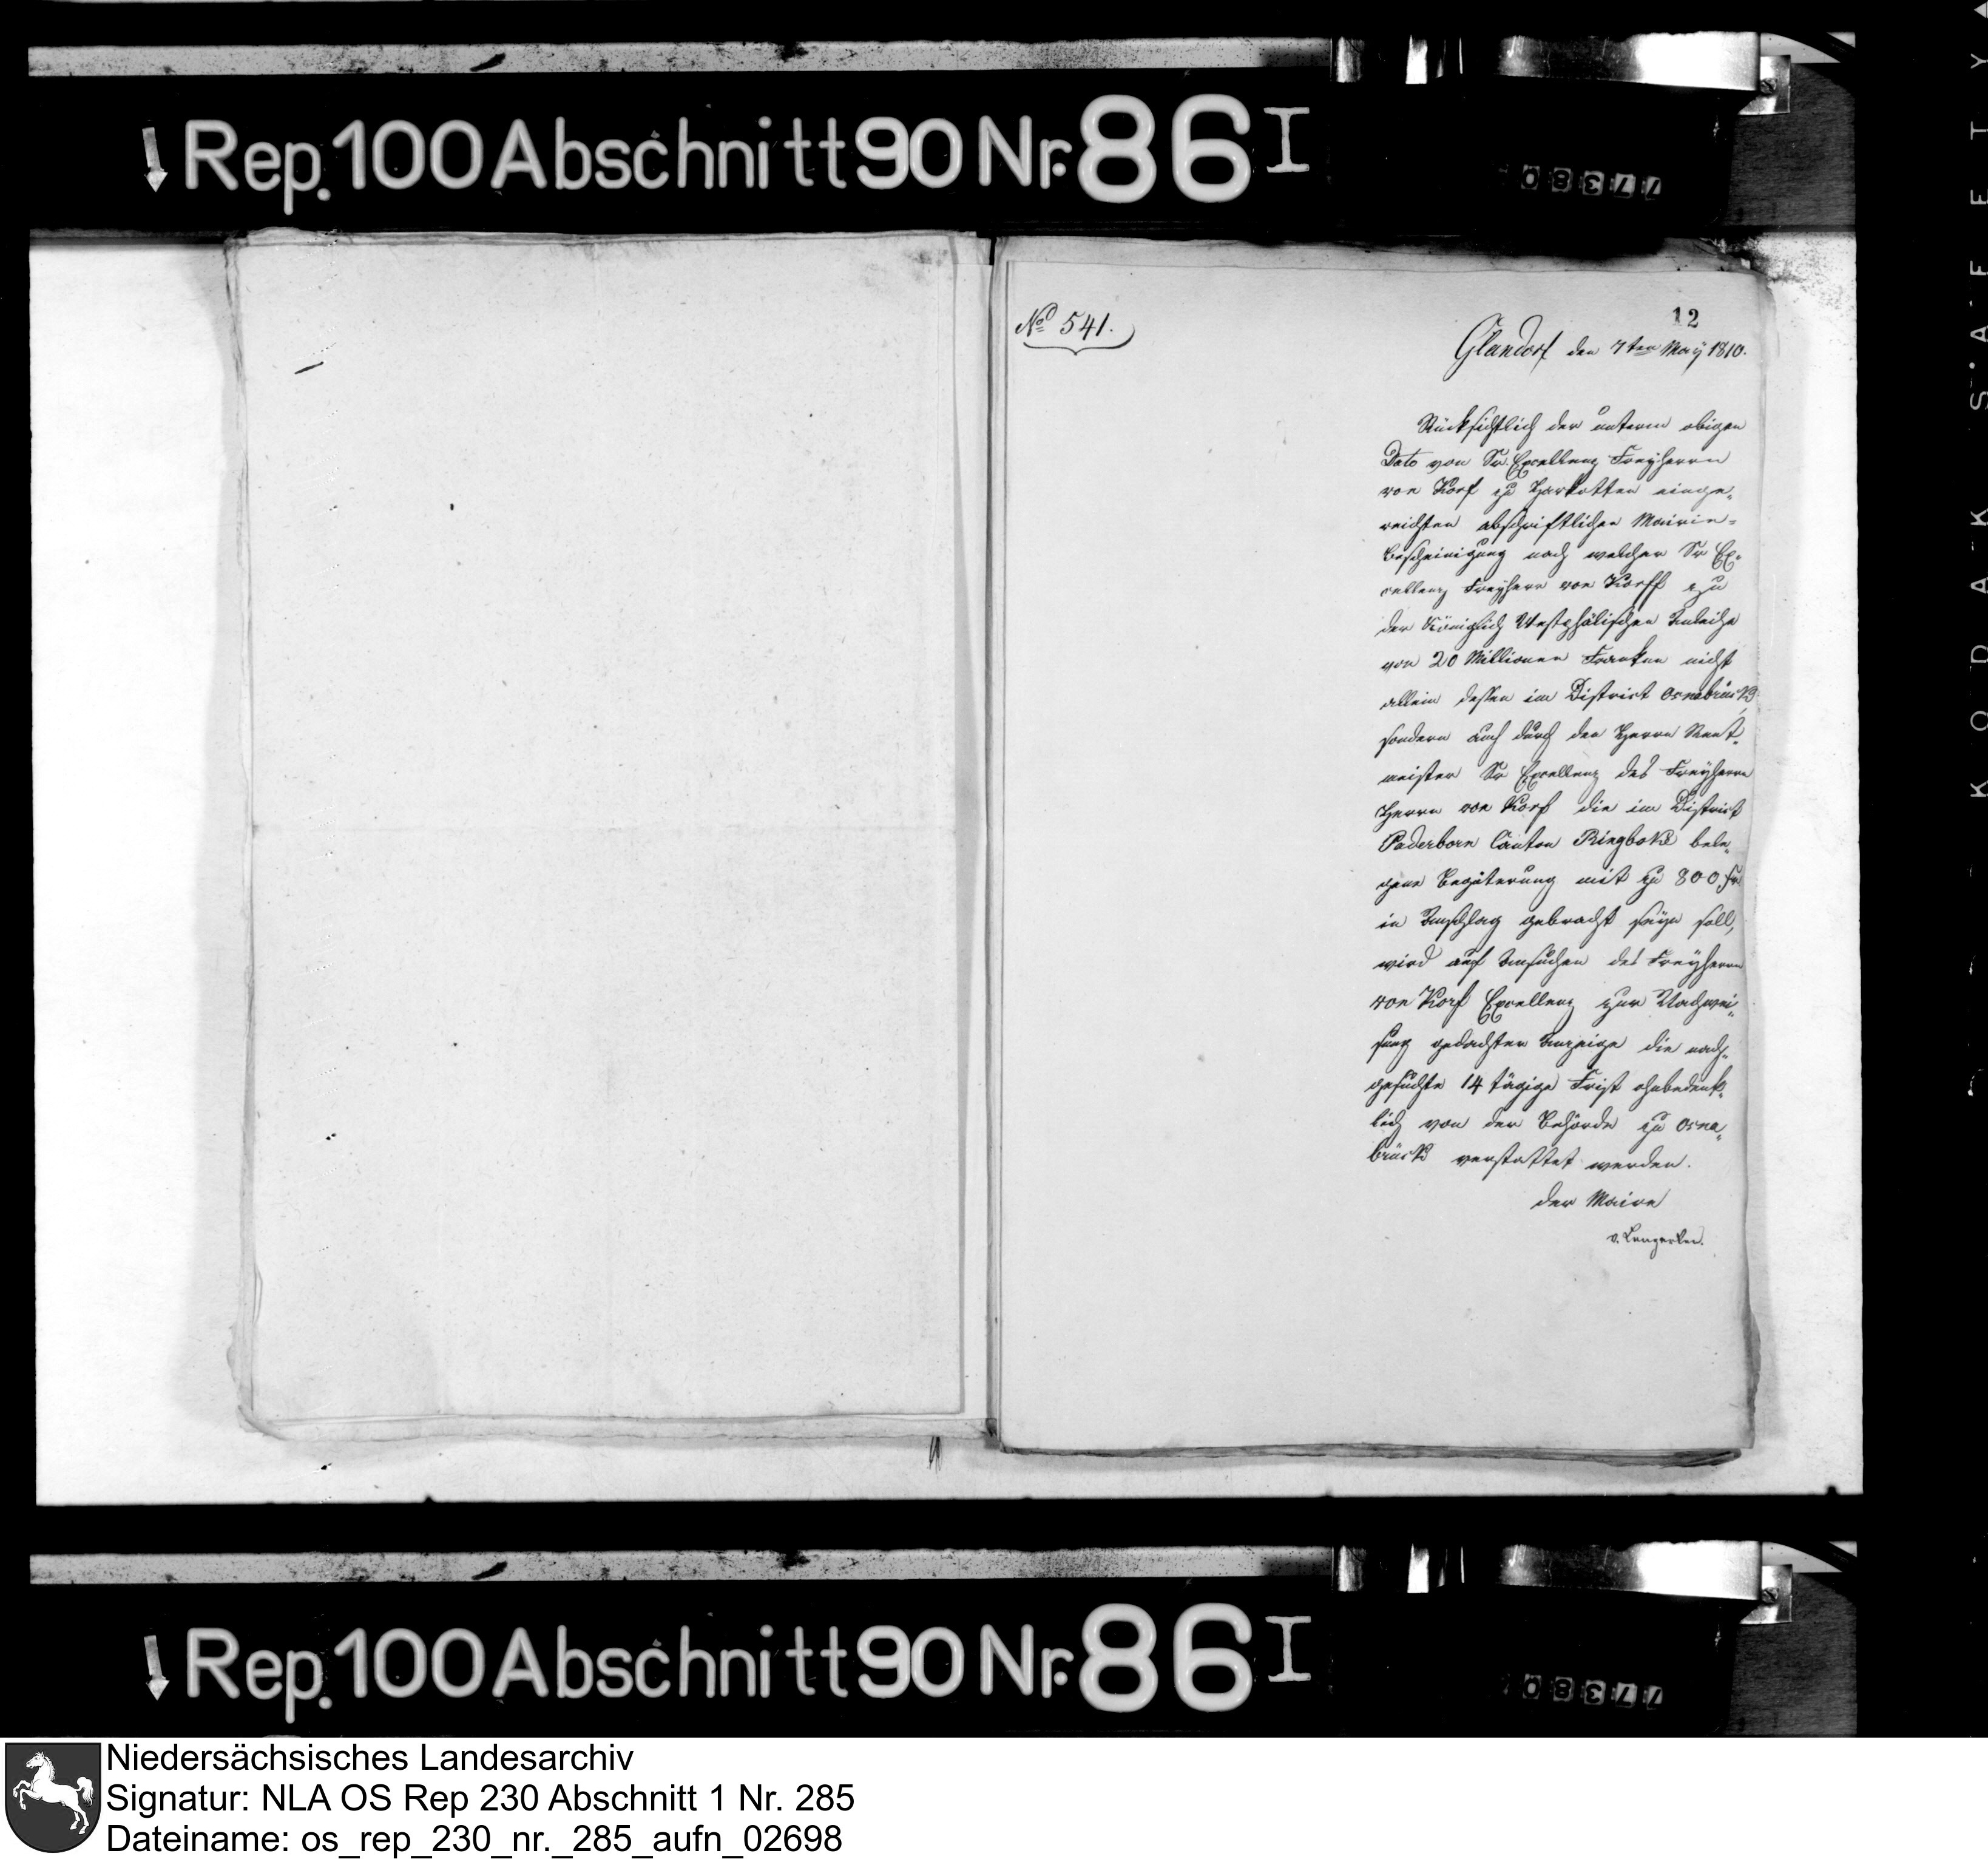 Rep. 100 Abschnitt 90 Nr. 86 I
77380
12
No 541.
Glandorf den 7ten May 1810.
Rücksichtlich der unterm obigen
Dato von Sr. Excellenz Freyherrn
von Korf zu Harkotten einge„
reichten abschriftlichen Mairie=
Bescheinigung nach welcher Sr Ex„
cellenz Freyherr von Korff zu
der Königlich Westphälischen Anleihe
von 20 Millionen Franken nicht
allein dessen im District Osnabrück
sondern auch durch den Herrn Rent„
meister Sr Excellenz des Freyherrn
Herrn von Korf die im District
Paderborn Canton Ringboke bele„
gene Begüterung mit zu 800 fr.
in Anschlag gebracht seyn soll,
wird auf Ansuchen des Freyherrn
von Korf Excellenz zur Nachwei„
sung gedachter Anzeige die nach„
gesuchte 14 tägige Frist ohnbedenk„
lich von der Behörde zu Osna„
brück verstattet werden.
der Maire
v. Lengerken.
Rep. 100 Abschnitt 90 Nr. 86 I
77380
KODAK SAFETY
Niedersächsisches Landesarchiv
Signatur: NLA OS Rep 230 Abschnitt 1 Nr. 285
Dateiname: os_rep_230_nr._285_aufn_02698